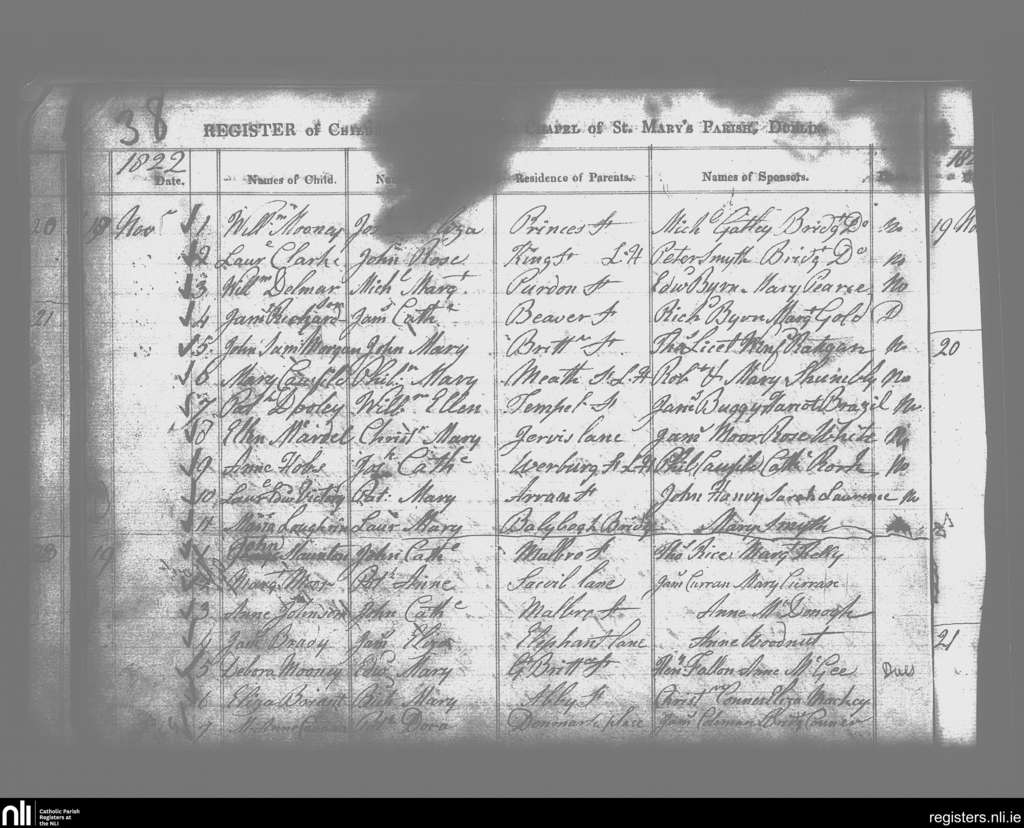 38
REGISTER of CHAPEL of ST. MARY'S PARISH, DUBLIN
1822
Date. Names of Child. Residence of Parents. Names of Sponsors.
20 18 Novr 1 Willm Mooney Princes St Mich Gaffey Bridgt Do No 19 No
2 Laure Clarke John Rose King St L.H Peter Smyth Bridgt Do No
3 Willm Delmar Michl Margt Purdon St Edwd Byrn Mary Pearse No
21 4 Jams Richardson Jams Cathe Beaver St Richd Byrn Margt Gold D
5 John Morgan John Mary Brittn St Thos Licet Ratigan No 20
6 Mary Philip Mary Meath St L.H Robt & Mary No
7 Patk Dooley Willm Ellen Temple St Jams Buggy Brazil No
8 Ellen Christr Mary Jervis lane Jams Moor Rose White No
9 Anne Hobs Josh Cathe Werburg St L.H Phil Cathe Rork No
10 Laure Pat. Mary Arran St John Hanvy Sarah Laurence No
11 Maria Laur Mary Balybogh Bridge Mary Smyth
23 19 1 John Cathe Malbro St Thos Rice Mary Kelly
2 Margt Moor Patk Anne Sacvil lane Jams Curran Mary Curran
3 Anne Johnson John Cathe Malbro St Anne McDonogh
4 Brady Jams Eliza Elephant lane Anne Woodnut 21
5 Debora Mooney Edwd Mary Gt Brittn St Fallon Jane McGee
6 Eliza Mary Abby St Christr Connor Eliza Mackey
7 Patk Dora Denmark place Jams Coleman Bridgt Connor
nli Catholic Parish
Registers at
the NLI
registers.nli.ie